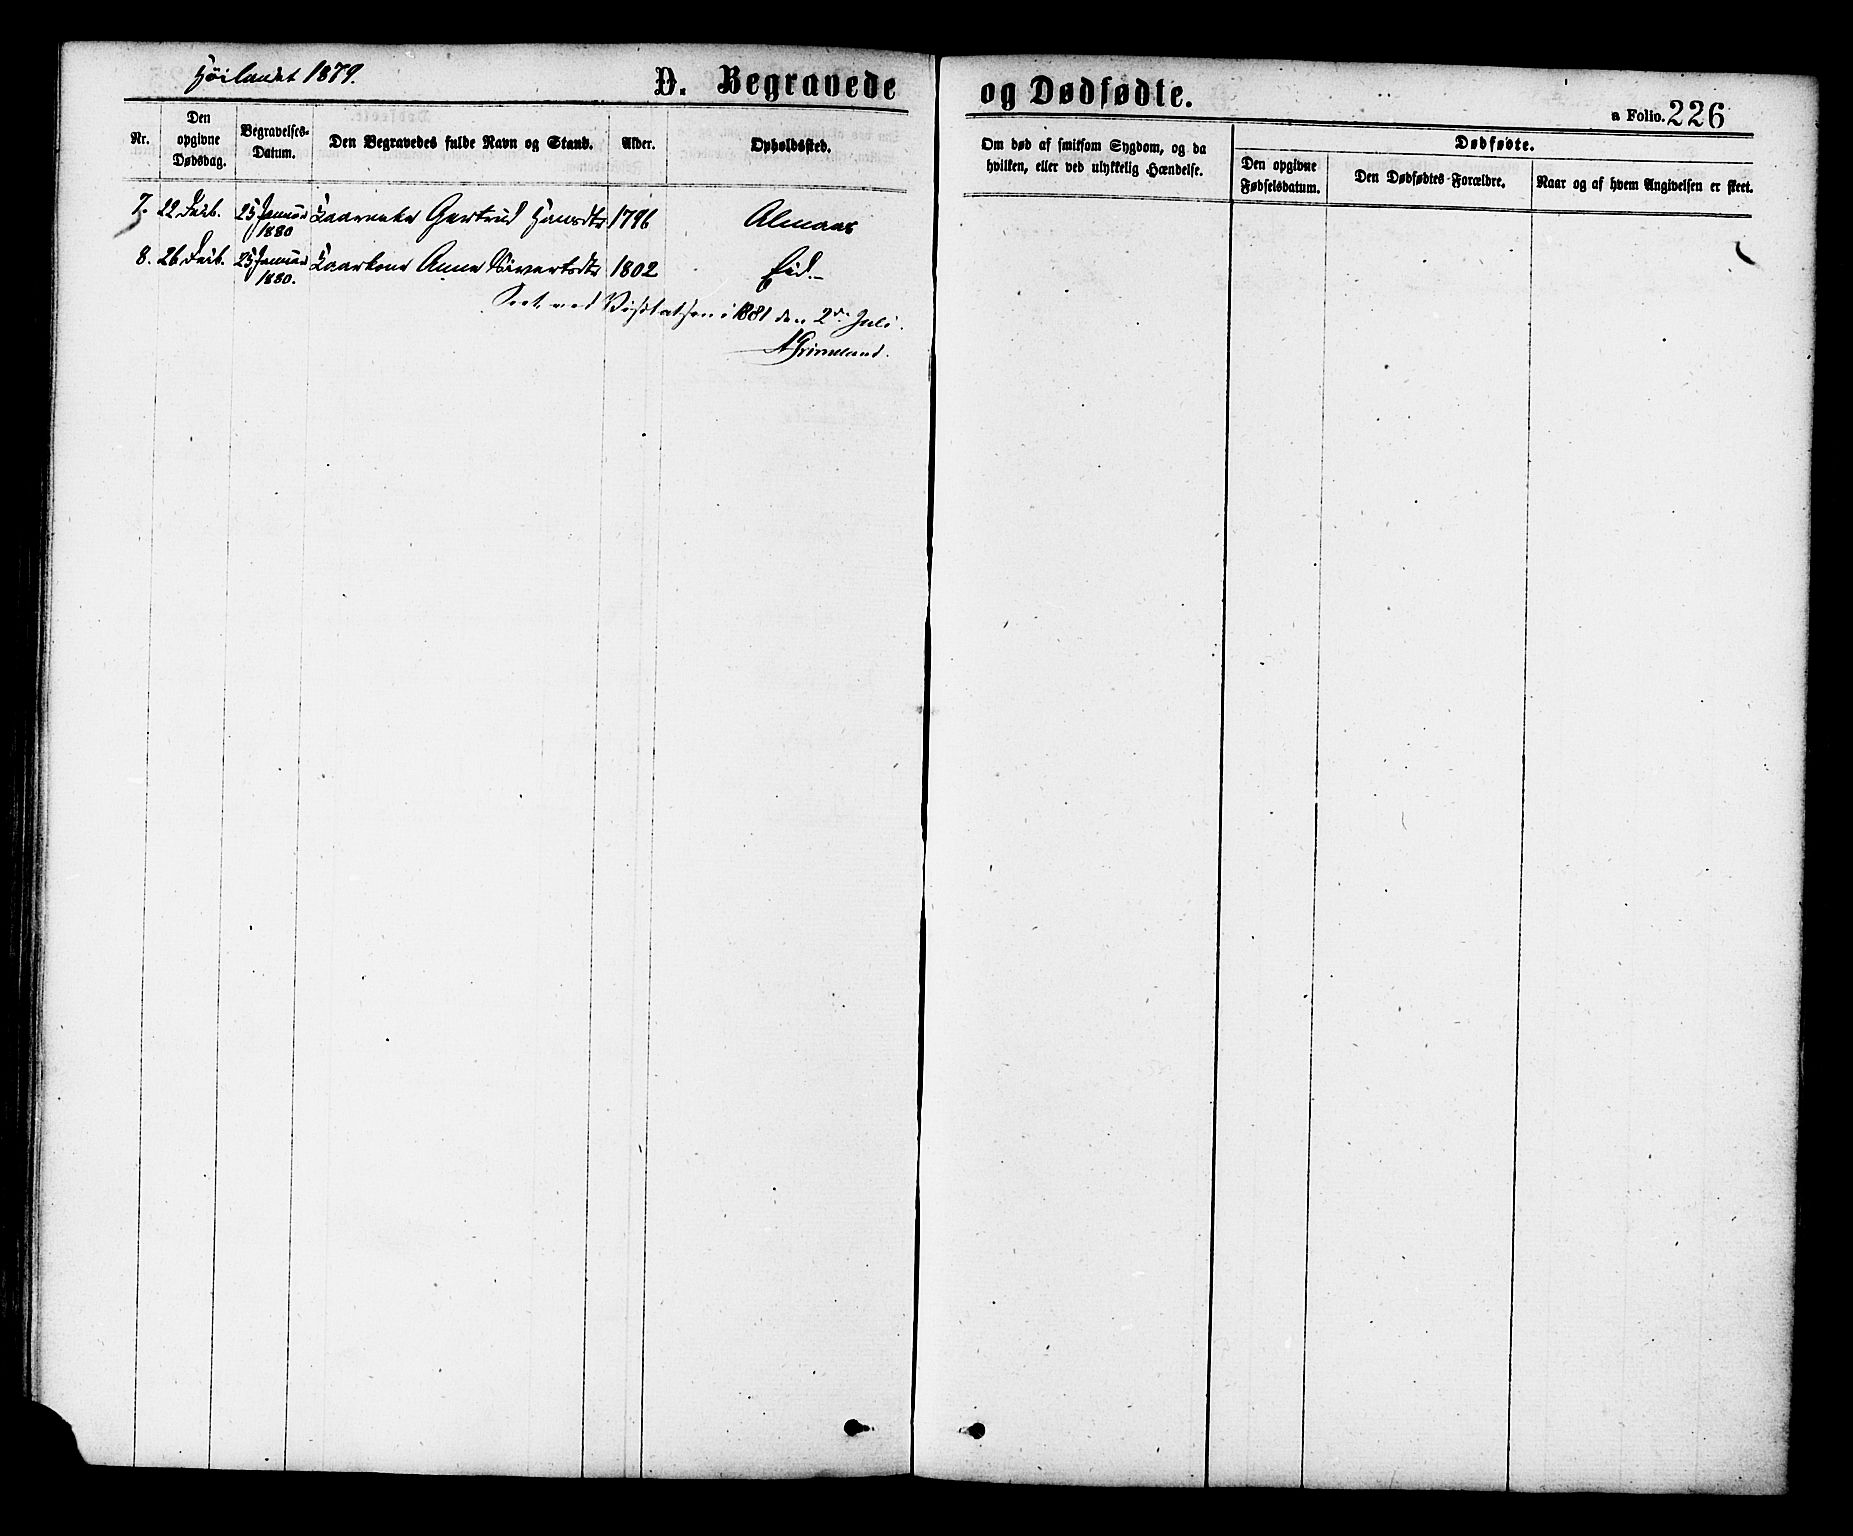 Höilandet 1879.
D. Begravede og Dødfødte.
a Folio. 226
Nr.
Den opgivne Dødsdag.
Begravelses-Datum.
Den Begravedes fulde Navn og Stand.
Alder.
Opholdssted.
Om død af smitsom Sygdom, og da hvilken, eller ved ulykkelig Hændelse.
Dødfødte.
Den opgivne Fødselsdatum.
Den Dødfødtes Forældre.
Naar og af hvem Angivelsen er skeet.
7. 22 25 Januar 1880 Gertrud Hansdtr 1796 Almaas
8. 26 25 Januar 1880. Kaarkone Anne Sivertsdtr 1802 Eid.
Seet ved Visitatsen i 1881 den 2den Juli.
A Grimelund.